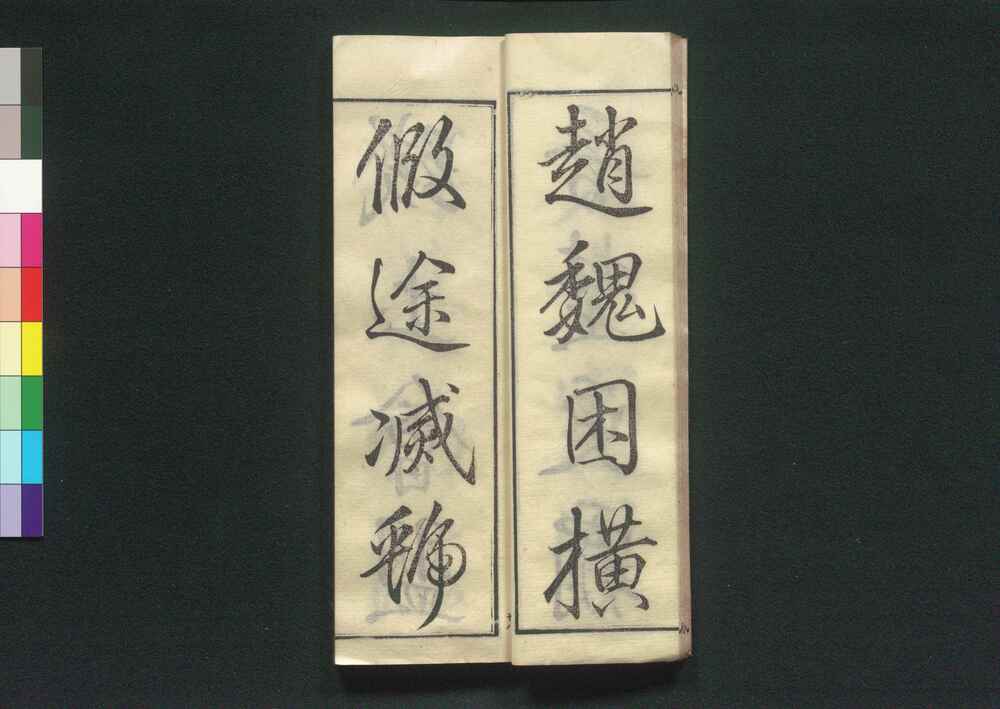 趙魏困横
假途滅虢